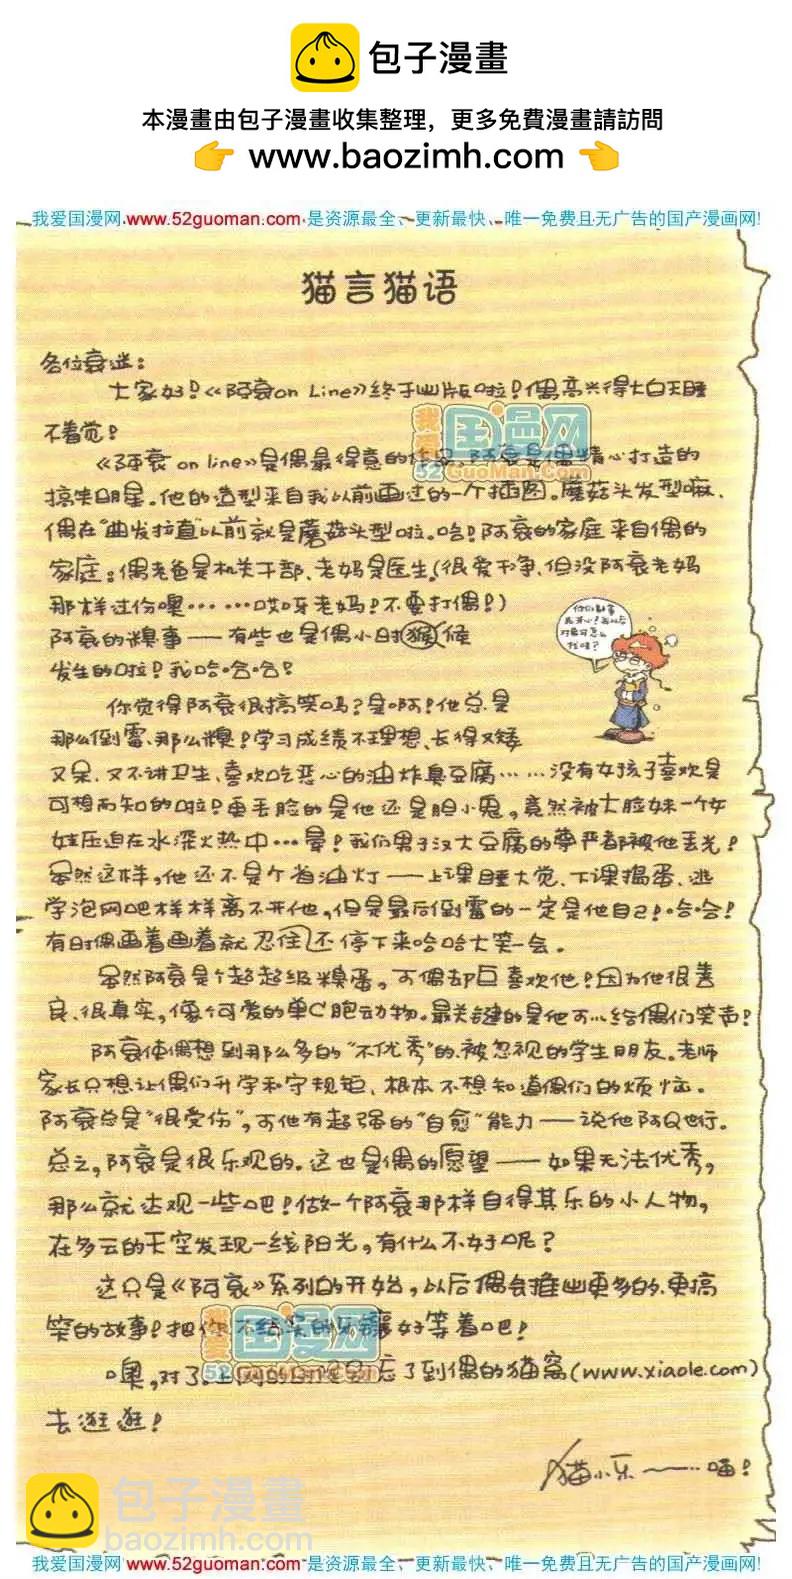 包子漫畫
本漫畫由包子漫畫收集整理，更多免費漫畫請訪問
👉 www.baozimh.com 👈
我爱国漫网 www.52guoman.com 是资源最全、更新最快、唯一免费且无广告的国产漫画网!
猫言猫语
各位衰迷：
大家好！《阿衰on Line》终于出版啦！偶高兴得大白天睡
不着觉！
《阿衰 on line》是偶最得意的作品，阿衰是偶精心打造的
搞笑明星。他的造型来自我以前画过的一个插图。蘑菇头发型嘛，
偶在“曲发拉直”以前就是蘑菇头型啦。哈！阿衰的家庭来自偶的
家庭：偶老爸是机关干部、老妈是医生（很爱干净，但没阿衰老妈
那样过份噢……哎呀老妈！不要打偶！）
阿衰的糗事——有些也是偶小时猴候
发生的啦！我哈哈哈！
你觉得阿衰很搞笑吗？是啊！他总是
那么倒霉、那么糗！学习成绩不理想、长得又矮
又呆、又不讲卫生、喜欢吃恶心的油炸臭豆腐……没有女孩子喜欢是
可想而知的啦！更丢脸的是他还是胆小鬼，竟然被大脸妹一个女
娃压迫在水深火热中…晕！我们男子汉大豆腐的尊严都被他丢光！
虽然这样，他还不是个省油灯——上课睡大觉、下课捣蛋、逃
学泡网吧样样离不开他，但是最后倒霉的一定是他自己！哈哈！
有时偶画着画着就忍住不停下来哈哈大笑一会。
虽然阿衰是个超超级糗蛋，可偶却巨喜欢他！因为他很善
良、很真实，像个可爱的单C胞动物。最关键的是他可以给偶们笑声！
阿衰使偶想到那么多的“不优秀”的、被忽视的学生朋友。老师
家长只想让偶们升学和守规矩，根本不想知道偶们的烦恼。
阿衰总是“很受伤”，可他有超强的“自愈”能力——说他阿Q也行。
总之，阿衰是很乐观的。这也是偶的愿望——如果无法优秀，
那么就达观一些吧！做一个阿衰那样自得其乐的小人物，
在多云的天空发现一线阳光，有什么不好呢？
这只是《阿衰》系列的开始，以后偶会推出更多的、更搞
笑的故事！把你不结实的牙镶好等着吧！
噢，对了。上网的时候别忘了到偶的猫窝（www.xiaole.com）
去逛逛！
猫小乐～～…喵！
我爱国漫网
52 GuoMan.Com
我爱国漫网
52 GuoMan.Com
包子漫畫
baozimh.com
我爱国漫网 www.52guoman.com 是资源最全、更新最快、唯一免费且无广告的国产漫画网!